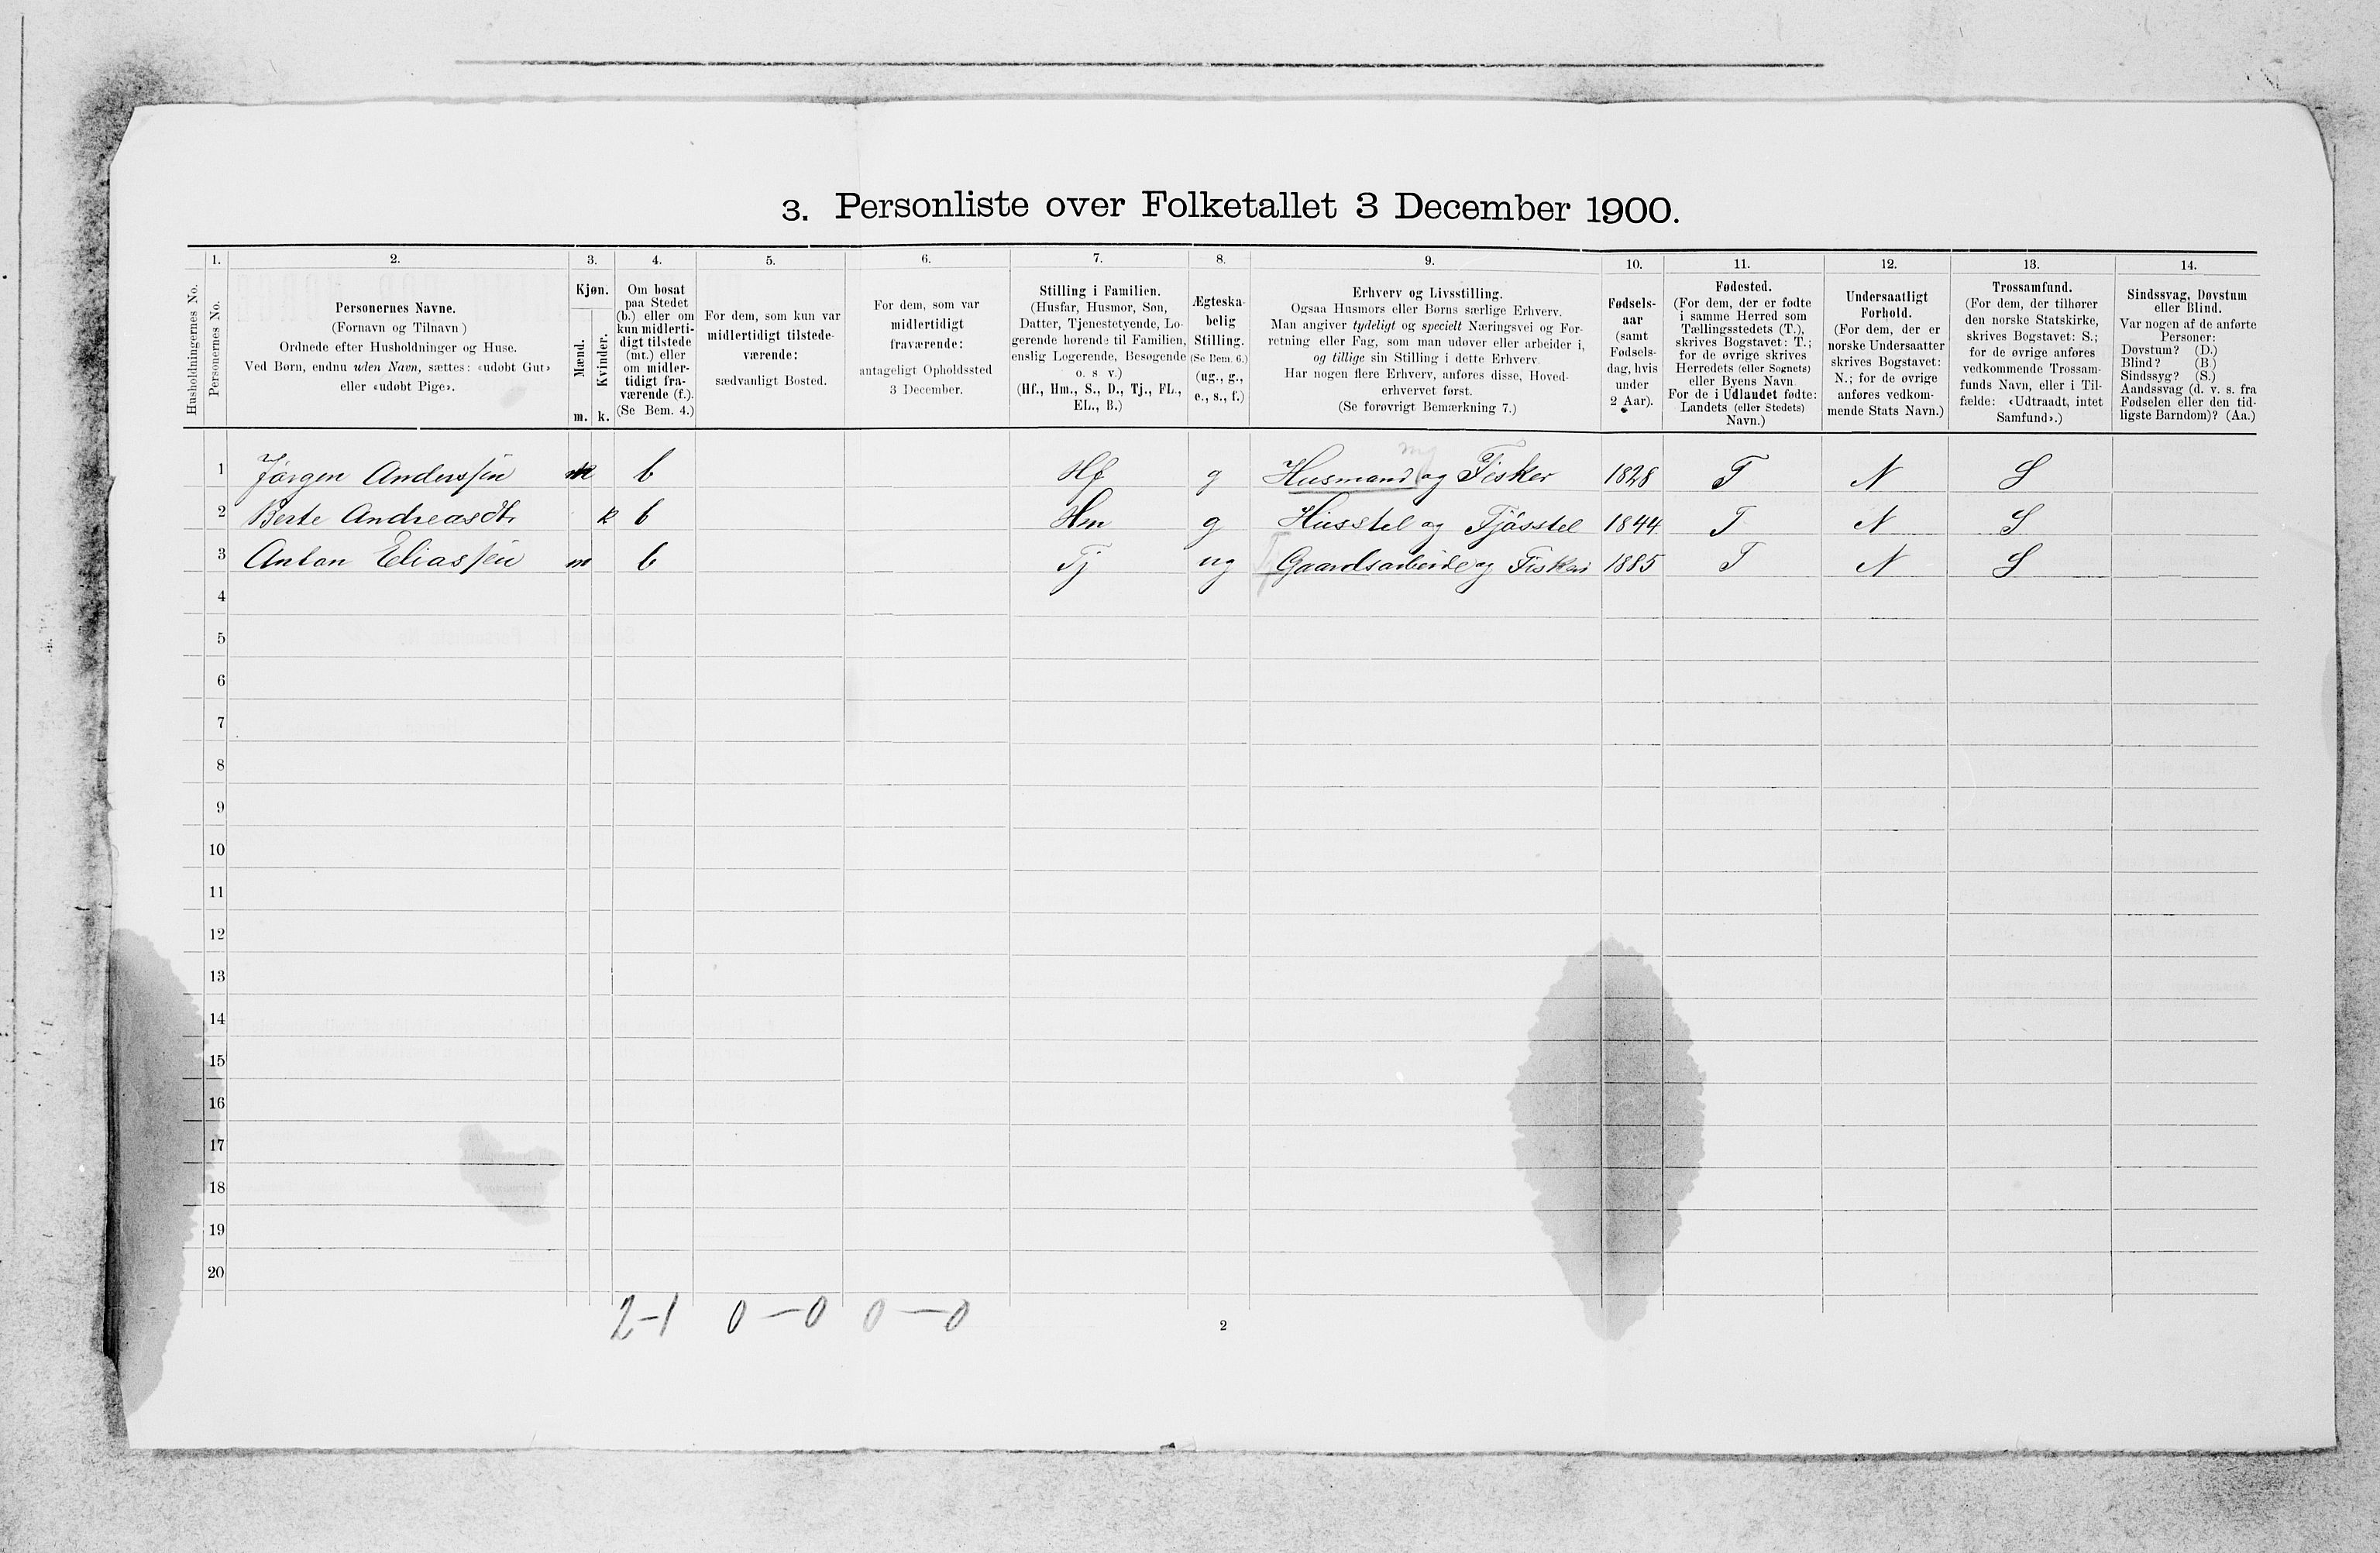 3. Personliste over Folketallet 3 December 1900.
Husholdningernes No.
1.
Personernes No.
2.
Personernes Navne.
(Fornavn og Tilnavn)
Ordnede efter Husholdninger og Huse.
Ved Børn, endnu uden Navn, sættes: «udøbt Gut»
eller «udøbt Pige».
3.
Kjøn.
Mænd.
m.
Kvinder.
k.
4.
Om bosat
paa Stedet
(b.) eller om
kun midlerti-
digt tilstede
(mt.) eller
om midler-
tidigt fra-
værende (f.).
(Se Bem. 4.)
5.
For dem, som kun var
midlertidigt tilstede-
værende:
sædvanligt Bosted.
6.
For dem, som var
midlertidigt
fraværende:
antageligt Opholdssted
3 December.
7.
Stilling i Familien.
(Husfar, Husmor, Søn,
Datter, Tjenestetyende, Lo-
gerende hørende til Familien,
enslig Logerende, Besøgende
o. s v.)
(Hf., Hm., S., D., Tj., FL.,
EL., B.)
8.
Ægteska-
belig
Stilling.
(Se Bem. 6.)
(ug., g.,
e., s., f.)
9.
Erhverv og Livsstilling.
Ogsaa Husmors eller Børns særlige Erhverv.
Man angiver tydeligt og specielt Næringsvei og For-
retning eller Fag, som man udøver eller arbeider i,
og tillige sin Stilling i dette Erhverv.
Har nogen flere Erhverv, anføres disse, Hoved-
erhvervet først.
(Se forøvrigt Bemærkning 7.)
10.
Fødsels-
aar
(samt
Fødsels-
dag, hvis
under
2 Aar).
11.
Fødested.
(For dem, der er fødte
i samme Herred som
Tællingsstedets (T.),
skrives Bogstavet: T.;
for de øvrige skrives
Herredets (eller Sognets)
eller Byens Navn
For de i Udlandet fødte:
Landets (eller Stedets)
Navn.)
12.
Undersaatligt
Forhold.
(For dem, der er
norske Undersaatter
skrives Bogstavet:
N.; for de øvrige
anføres vedkom-
mende Stats Navn.)
13.
Trossamfund.
(For dem, der tilhører
den norske Statskirke,
skrives Bogstavet: S.;
for de øvrige anføres
vedkommende Trossam-
funds Navn, eller i Til-
fælde: «Udtraadt, intet
Samfund».)
14.
Sindssvag, Døvstum
eller Blind.
Var nogen af de anførte
Personer:
Døvstum? (D.)
Blind? (B.)
Sindssyg? (S.)
Aandssvag (d. v. s. fra
Fødselen eller den tid-
ligste Barndom)? (Aa.)
1 Jørgen Anderssen m b Hf g Husmand og Fisker 1828 T N S
2 Berte Andreasdt. k b Hm g Husstel og Fjøsstel 1844 T N S
3 Anton Eliassen m b Tj ug Gaardsarbeide og Fiskeri 1885 T N S
4
5
6
7
8
9
10
11
12
13
14
15
16
17
18
19
20
2-1 0-0 0-0
2